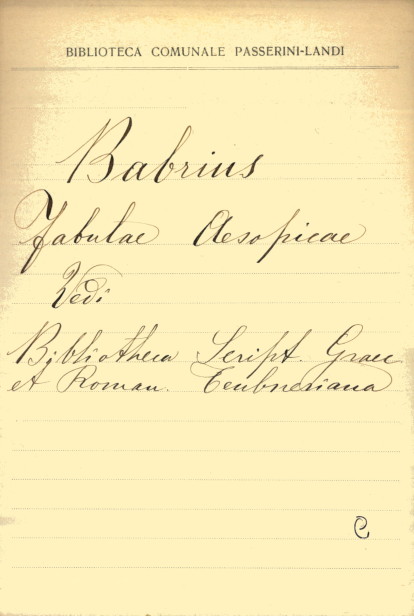 BIBLIOTECA COMUNALE PASSERINI-LANDI
Babrius
Fabulae Aesopicae
Vedi
Bibliotheca Script. Graec
et Roman. Teubneriana
C